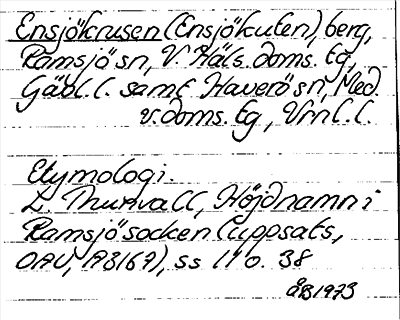 Ensjökrusen (Ensjökuten), berg,
Ramsjö sn, V. Häls. doms. tg,
Gävl. l. samt Haverö sn, Med.
v. doms. tg, Vrnl. l.
Etymologi.
L. Thunvall, Höjdnamn i
Ramsjö socken (uppsats,
OAU, A3167), ss 11 o. 38
ÅB 1973